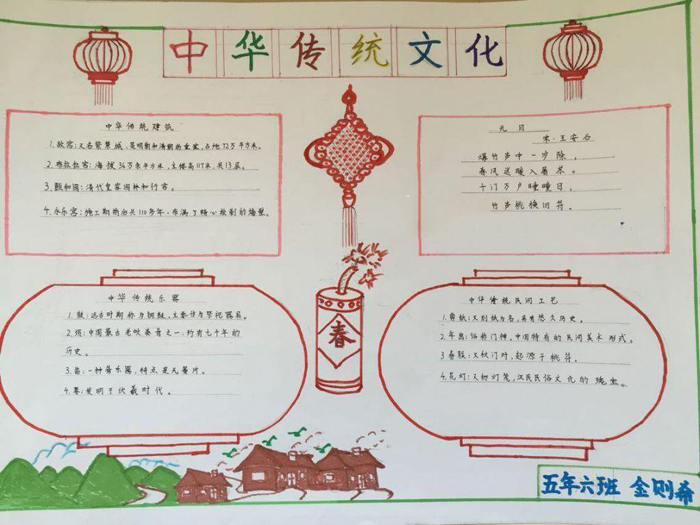 中华传统文化
中华传统建筑
1.故宫:又名紫禁城,是明朝和清朝的皇家,占地72万平方米。
2.布拉拉宫:海拔36万余平方米,主楼高117米,共13层。
3.颐和园:清代皇家园林和行宫。
4.永乐宫:施工期前后共110多年,布满了精心绘制的墙壁。
元日
宋·王安石
爆竹声中一岁除,
春风送暖入屠苏。
千门万户曈曈日,
竹声桃换旧符。
中华传统乐器
1.鼓:远古时期称为铜鼓,主要作为祭祀器具。
2.埙:中国最古老吹奏音之一,约有七千年的
历史。
3.笛:一种骨乐器,特点是无簧片。
4.琴:发明于伏羲时代。
中华传统民间工艺
1.剪纸:又刻纸为名,具有悠久历史。
2.年画:俗称门神,中国特有的民间美术形式。
3.春联:又称门对,起源于桃符。
4.花灯:又称灯笼,汉民民俗文化的
春
五年六班 金则希